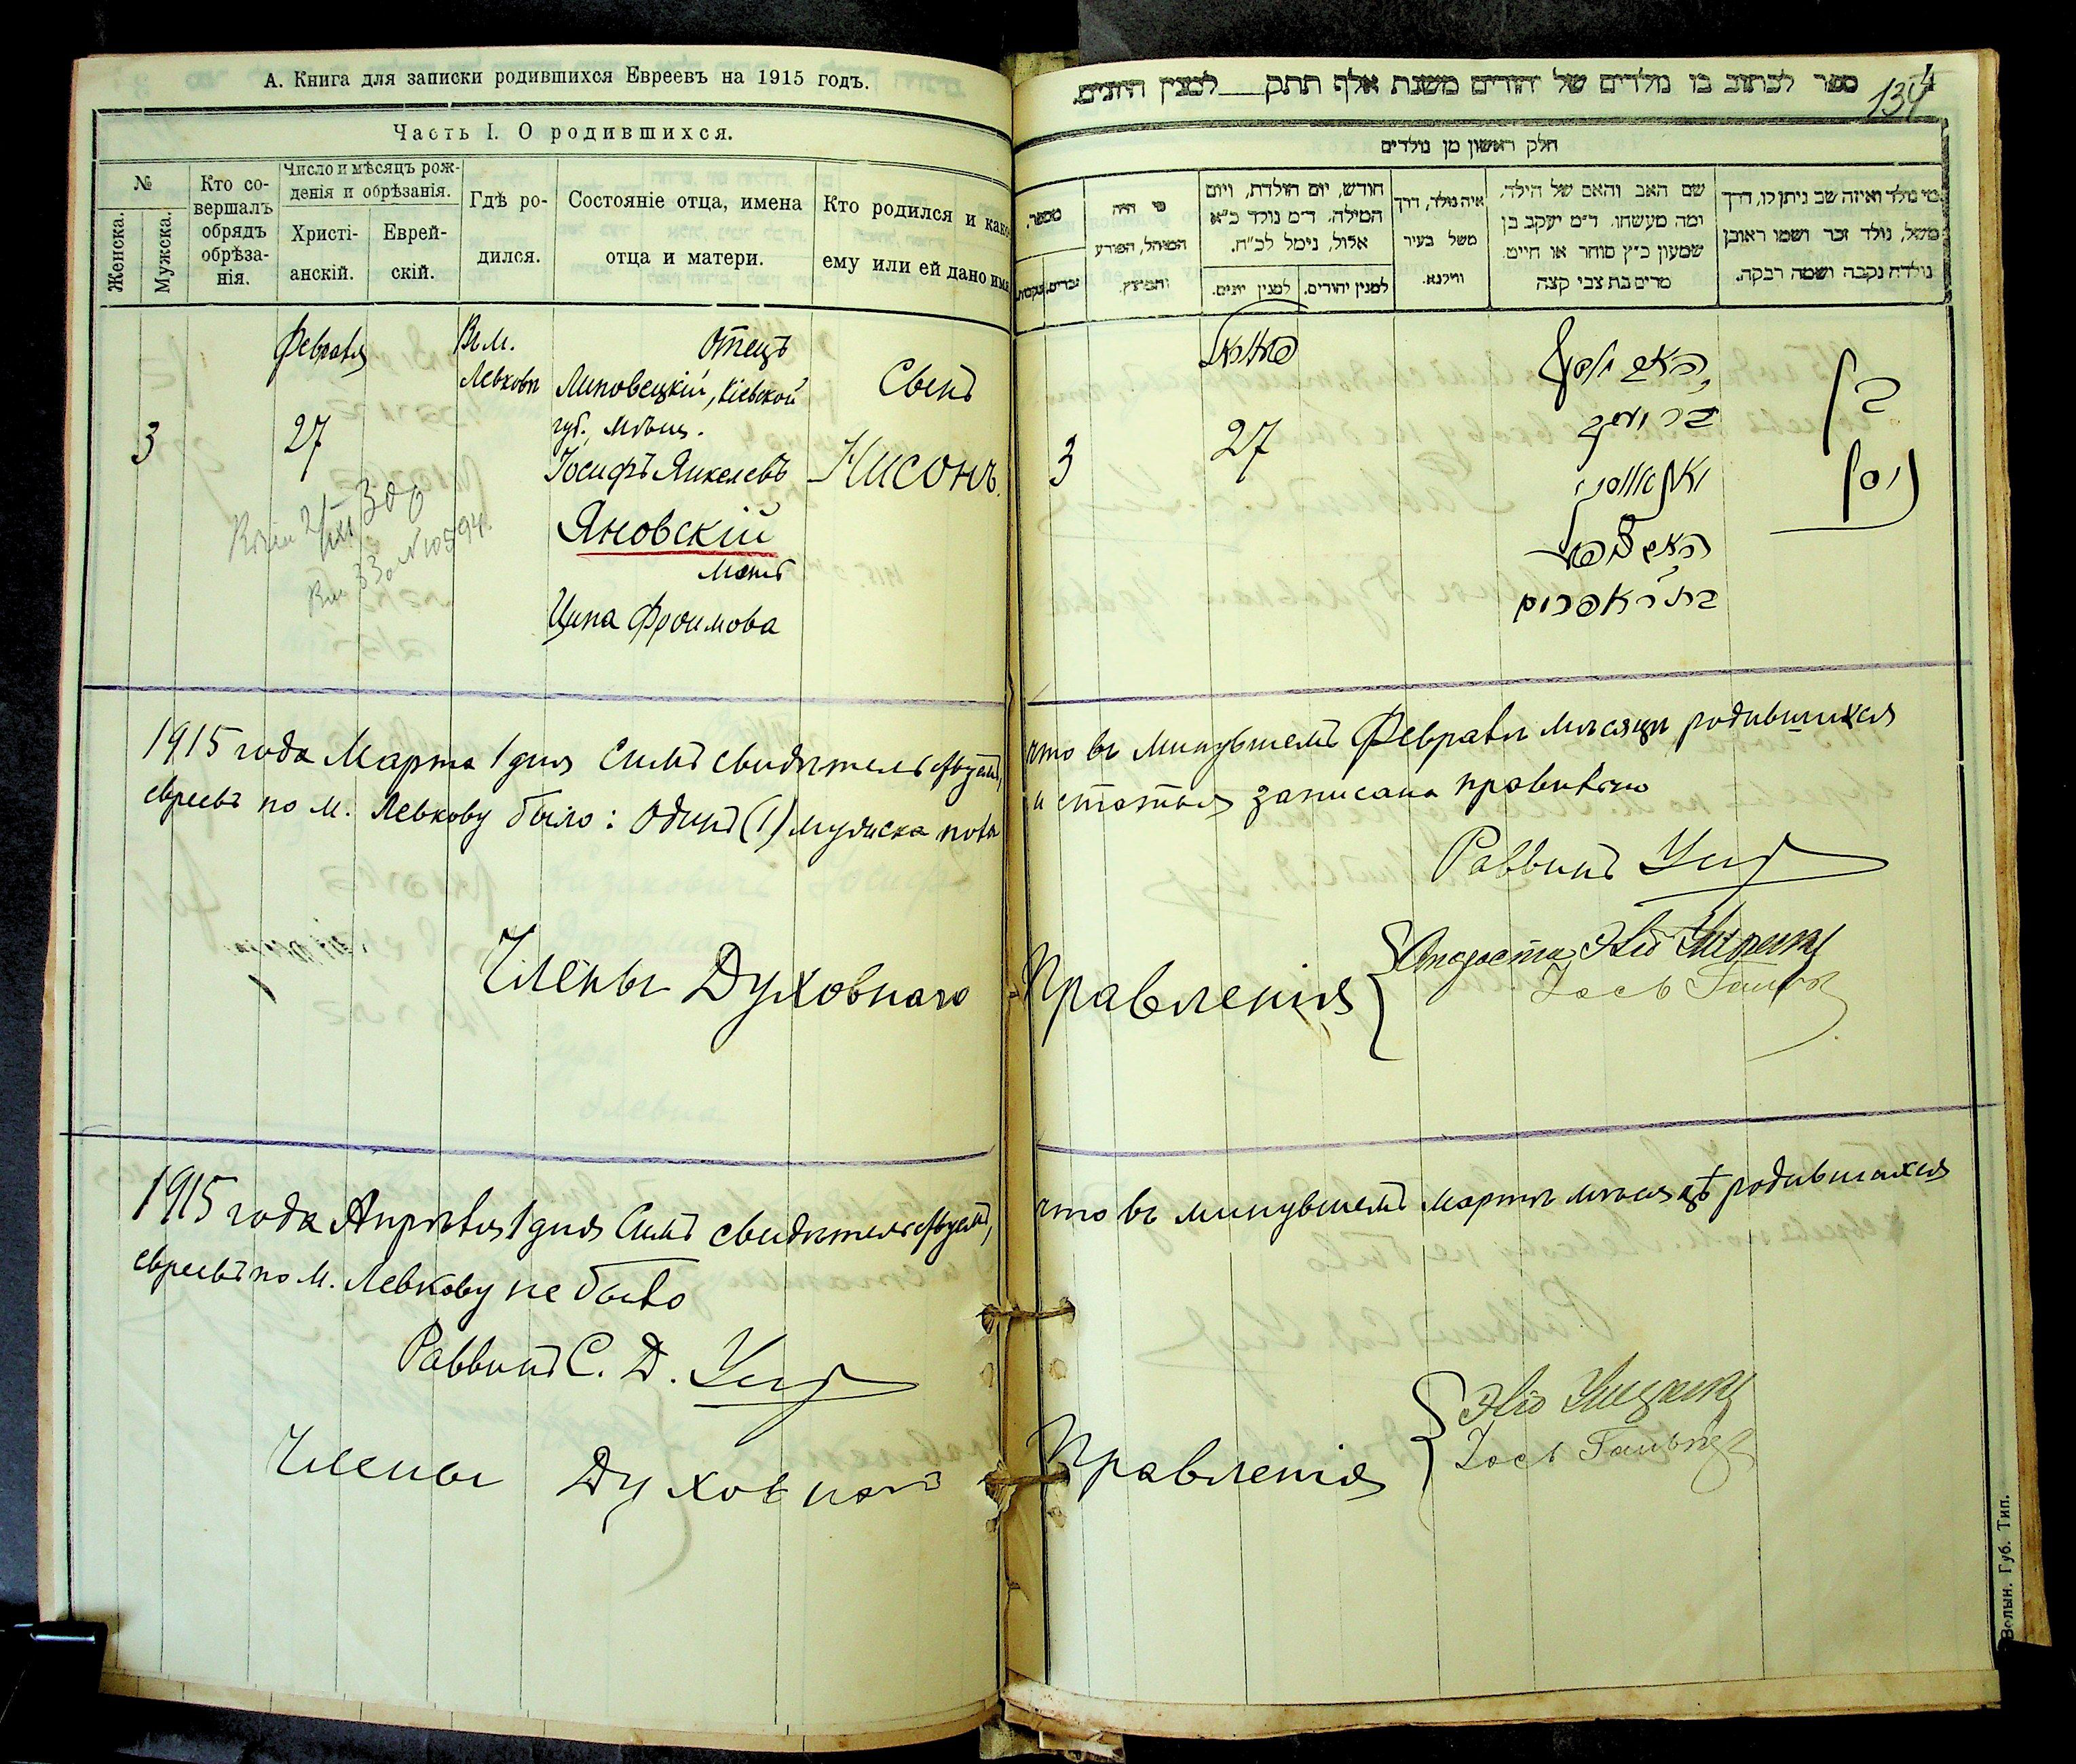 А. Книга для записки родившихся Евреевъ на 1915 годъ.
Часть I. О родившихся.
№
Женска.
Мужска.
Кто со-
вершалъ
обрядъ
обрѣза-
нія.
Число и мѣсяцъ рож-
денія и обрѣзанія.
Христі-
анскій.
Еврей-
скій.
Гдѣ ро-
дился.
Состояніе отца, имена
отца и матери.
Кто родился и како
ему или ей дано имя
3
Февраля
27
Въ м.
Левковѣ
Отецъ
Липовецкій, Кіевской
губ., мѣщ.
Іосифъ Янкелевъ
Яновскій
Мать
Ципа Фроимова
Сынъ
Нисонъ.
1915 года Марта 1 дня Симъ свидѣтельствуемъ,
евреевъ по м. Левкову было: Одинъ (1) мужска пола
Члены Духовнаго
1915 года Апрѣля 1 дня Симъ свидѣтельствуемъ,
евреевъ по м. Левкову не было
Раввинъ С. Д.
Члены Духовнаго
ספר לכתוב בו נולדים של יהודים משנת אלף תתק___למנין היונים.
134
4
חלק ראשון מן נולדים
מספר.
זכרים.
נקבות.
מי היה
המוהל, הפורע
והמוצץ.
חודש, יום הולדת, ויום
המילה. ד״מ נולד כ״א
אלול, נימל לכ״ח.
למנין יהודים.
למנין יונים.
איה נולד, דרך
משל בעיר
ווילנא.
שם האב והאם של הילד,
ומה מעשהו. ד״מ יעקב בן
שמעון כ״ץ סוחר או חייט.
מרים בת צבי קצה
מי נולד ואיזה שם ניתן לו, דרך
משל, נולד זכר ושמו ראובן
נולדה נקבה ושמה רבקה.
3
27
האב יוסף
בן
ניסן
что въ минувшемъ Февралѣ мѣсяцѣ родившихся
и статья записана правильно
Раввинъ
Правленія
Староста
Іось
что въ минувшемъ мартѣ мѣсяцѣ родившихся
Правленія
Іось
Волын. Губ. Тип.